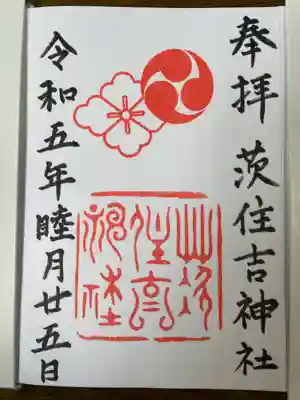 奉拝 茨住吉神社
茨住吉神社
令和五年睦月廿五日